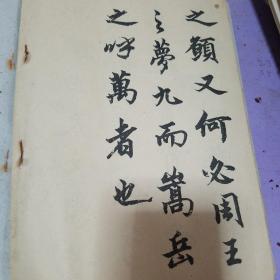 之願又何必周王
之夢九而嵩岳
之呼萬者也